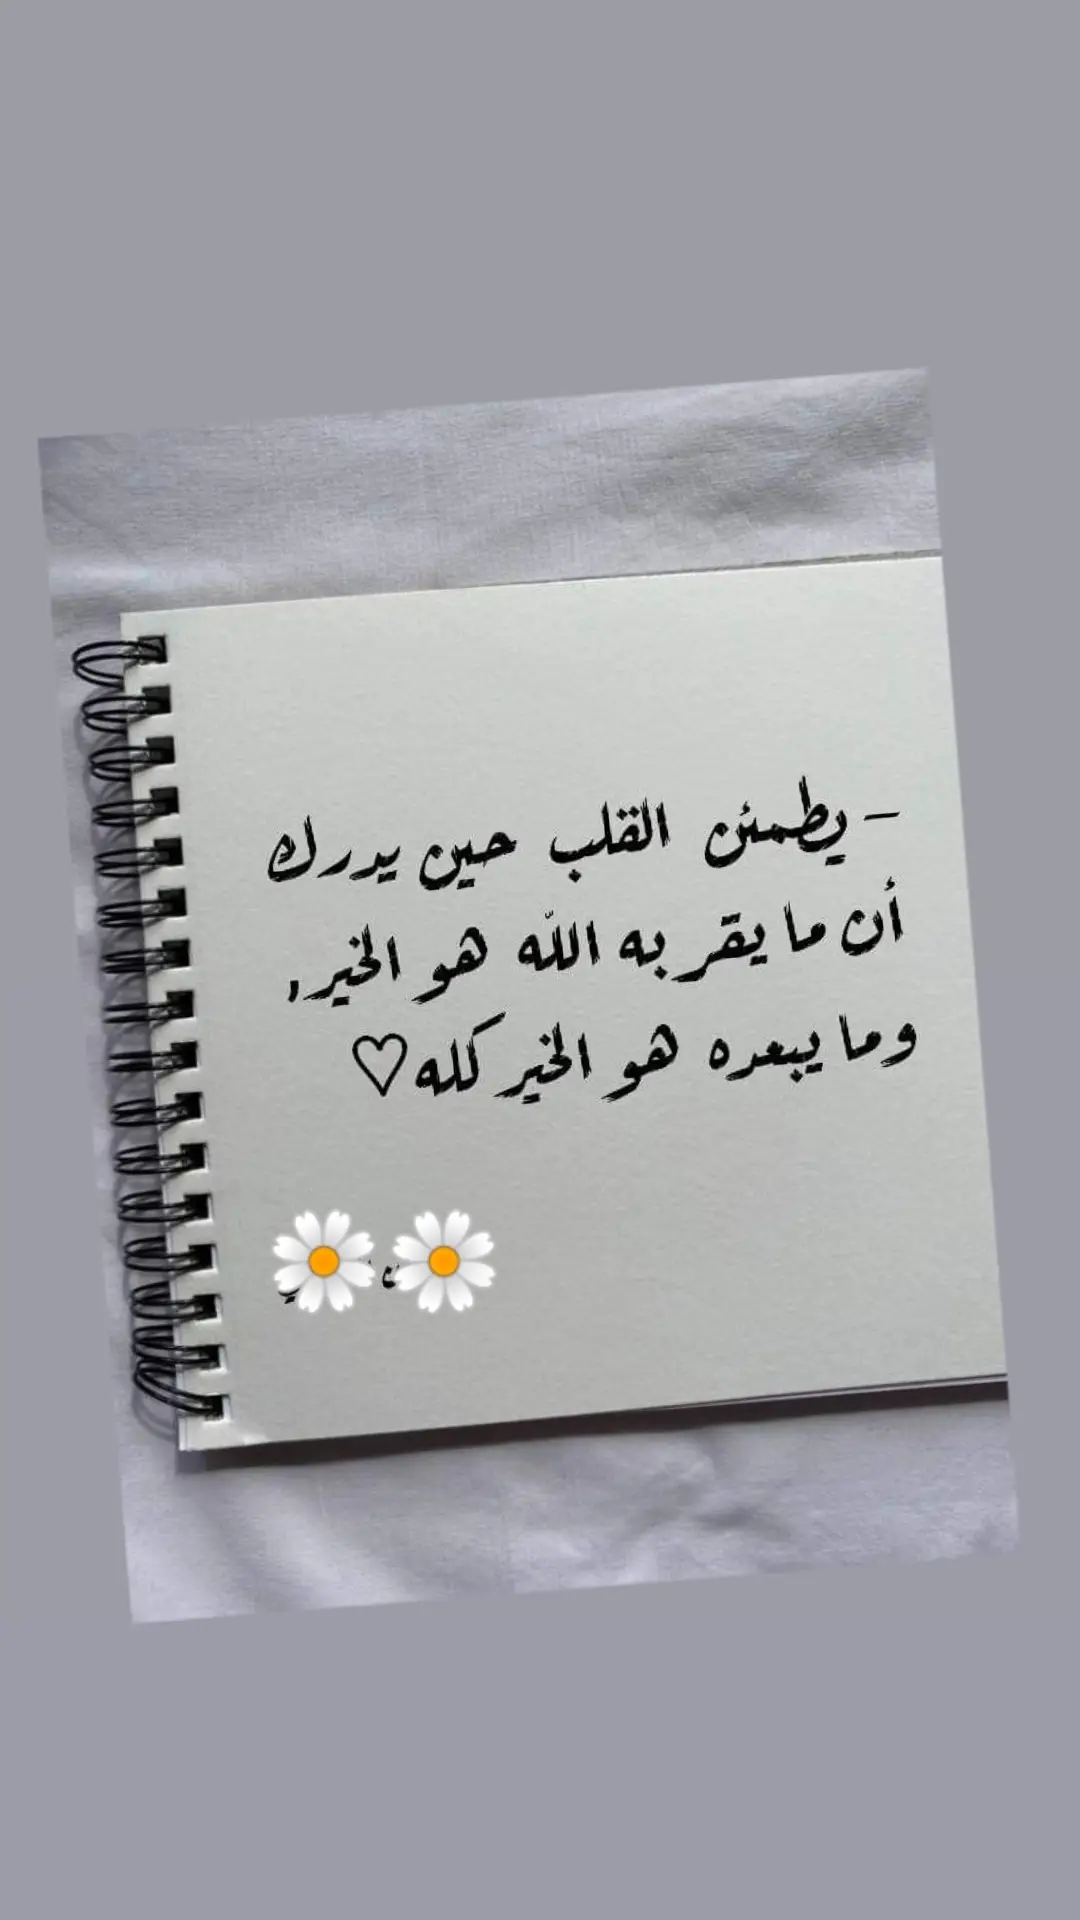 - يطمئن القلب حين يدرك
أن ما يقربه الله هو الخير,
وما يبعده هو الخير كله♡